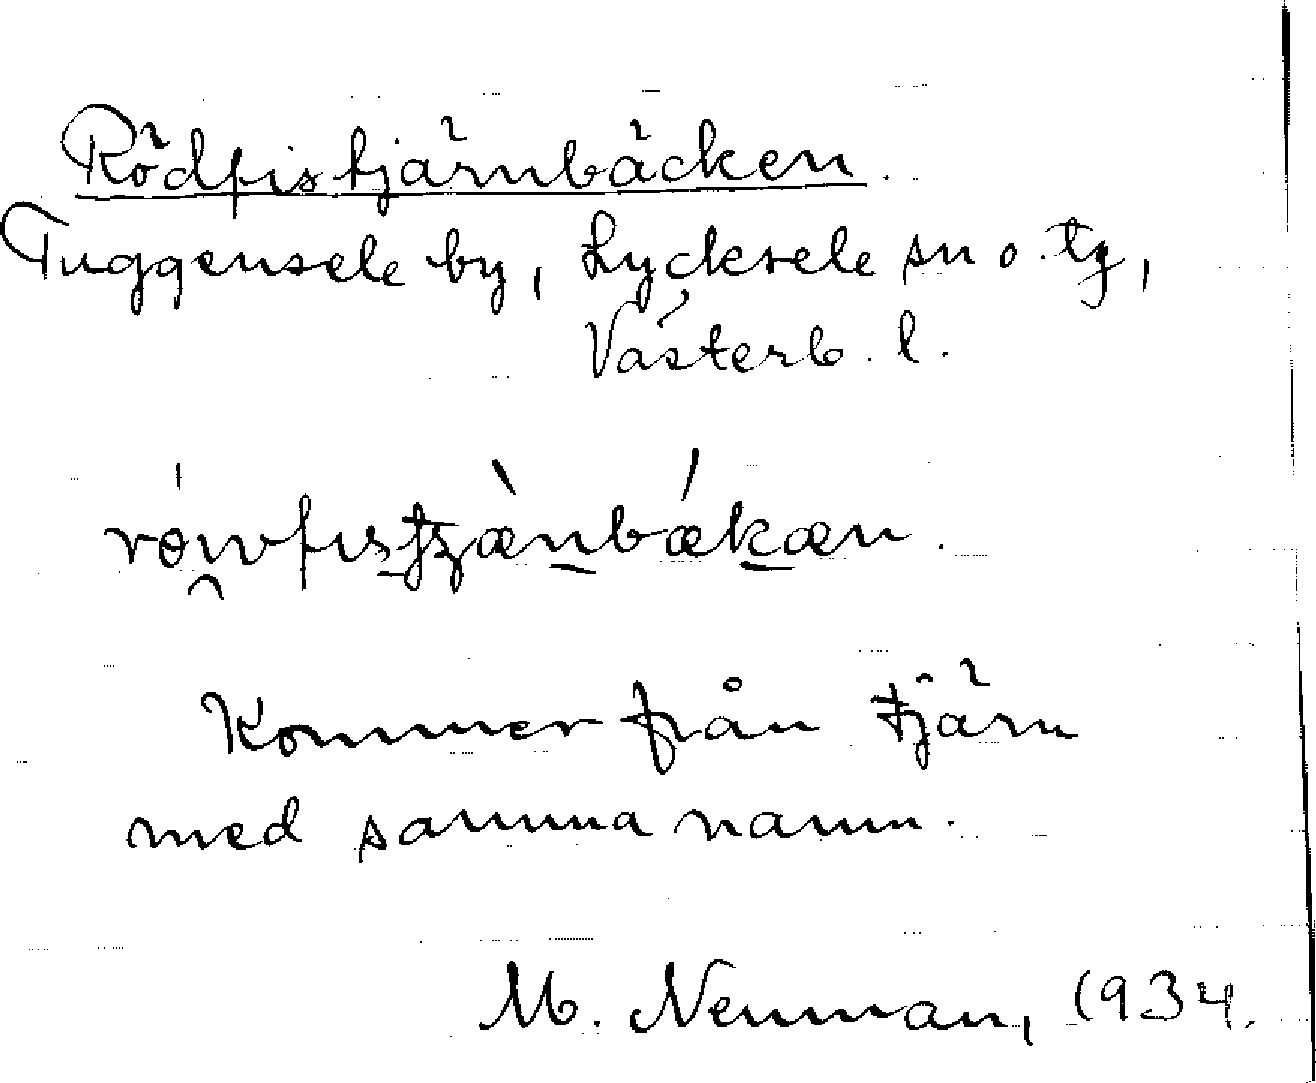 Rödfistjärnbäcken.
Tuggensele by, Lycksele sn o. tg,
Västerb. l.
Kommer från tjärn
med samma namn.
M. Neuman, 1934.